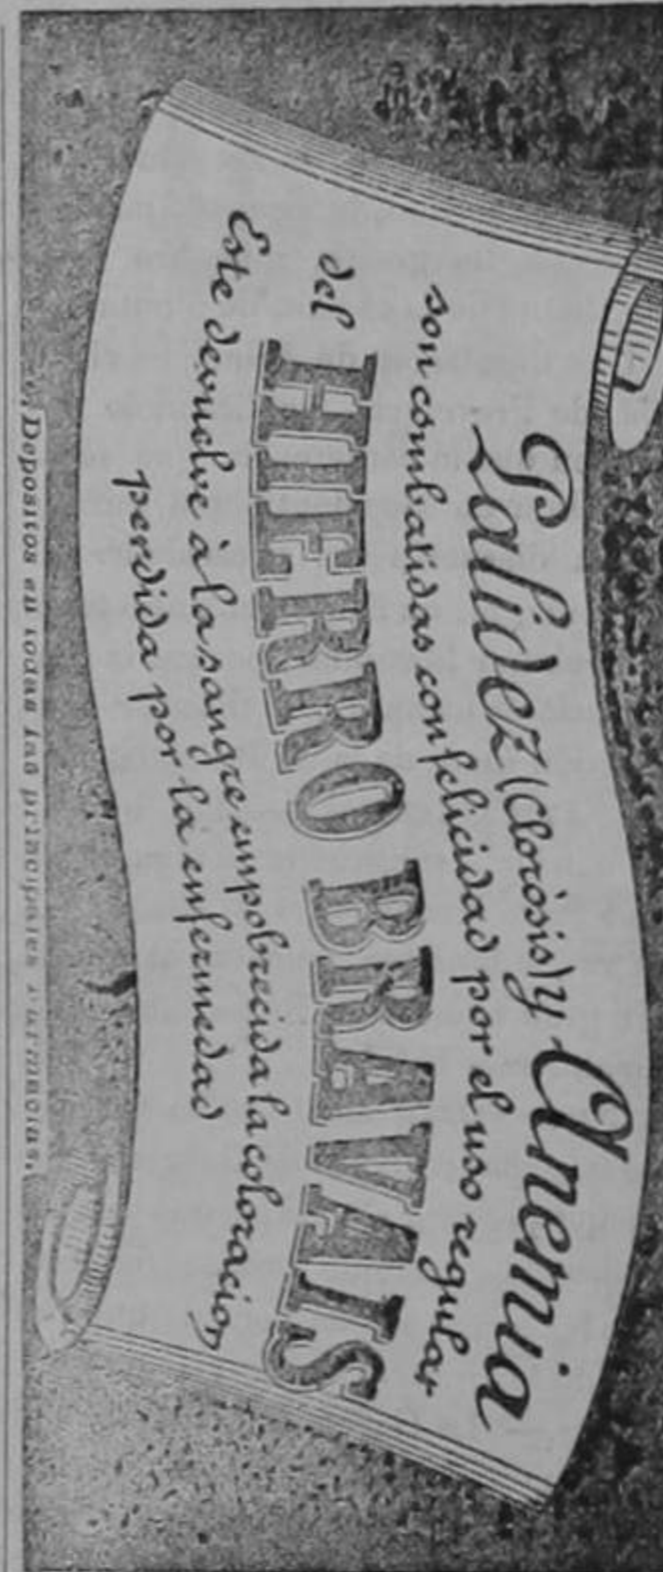 Palidez (Cloròsis) y Anemia
son combatidas con felicidad por el uso regular
del HIERRO BRAVAIS
Este devuelve à la sangre empobrecida la coloracion
perdida por la enfermedad
Depositos en todas las principales Farmacias.